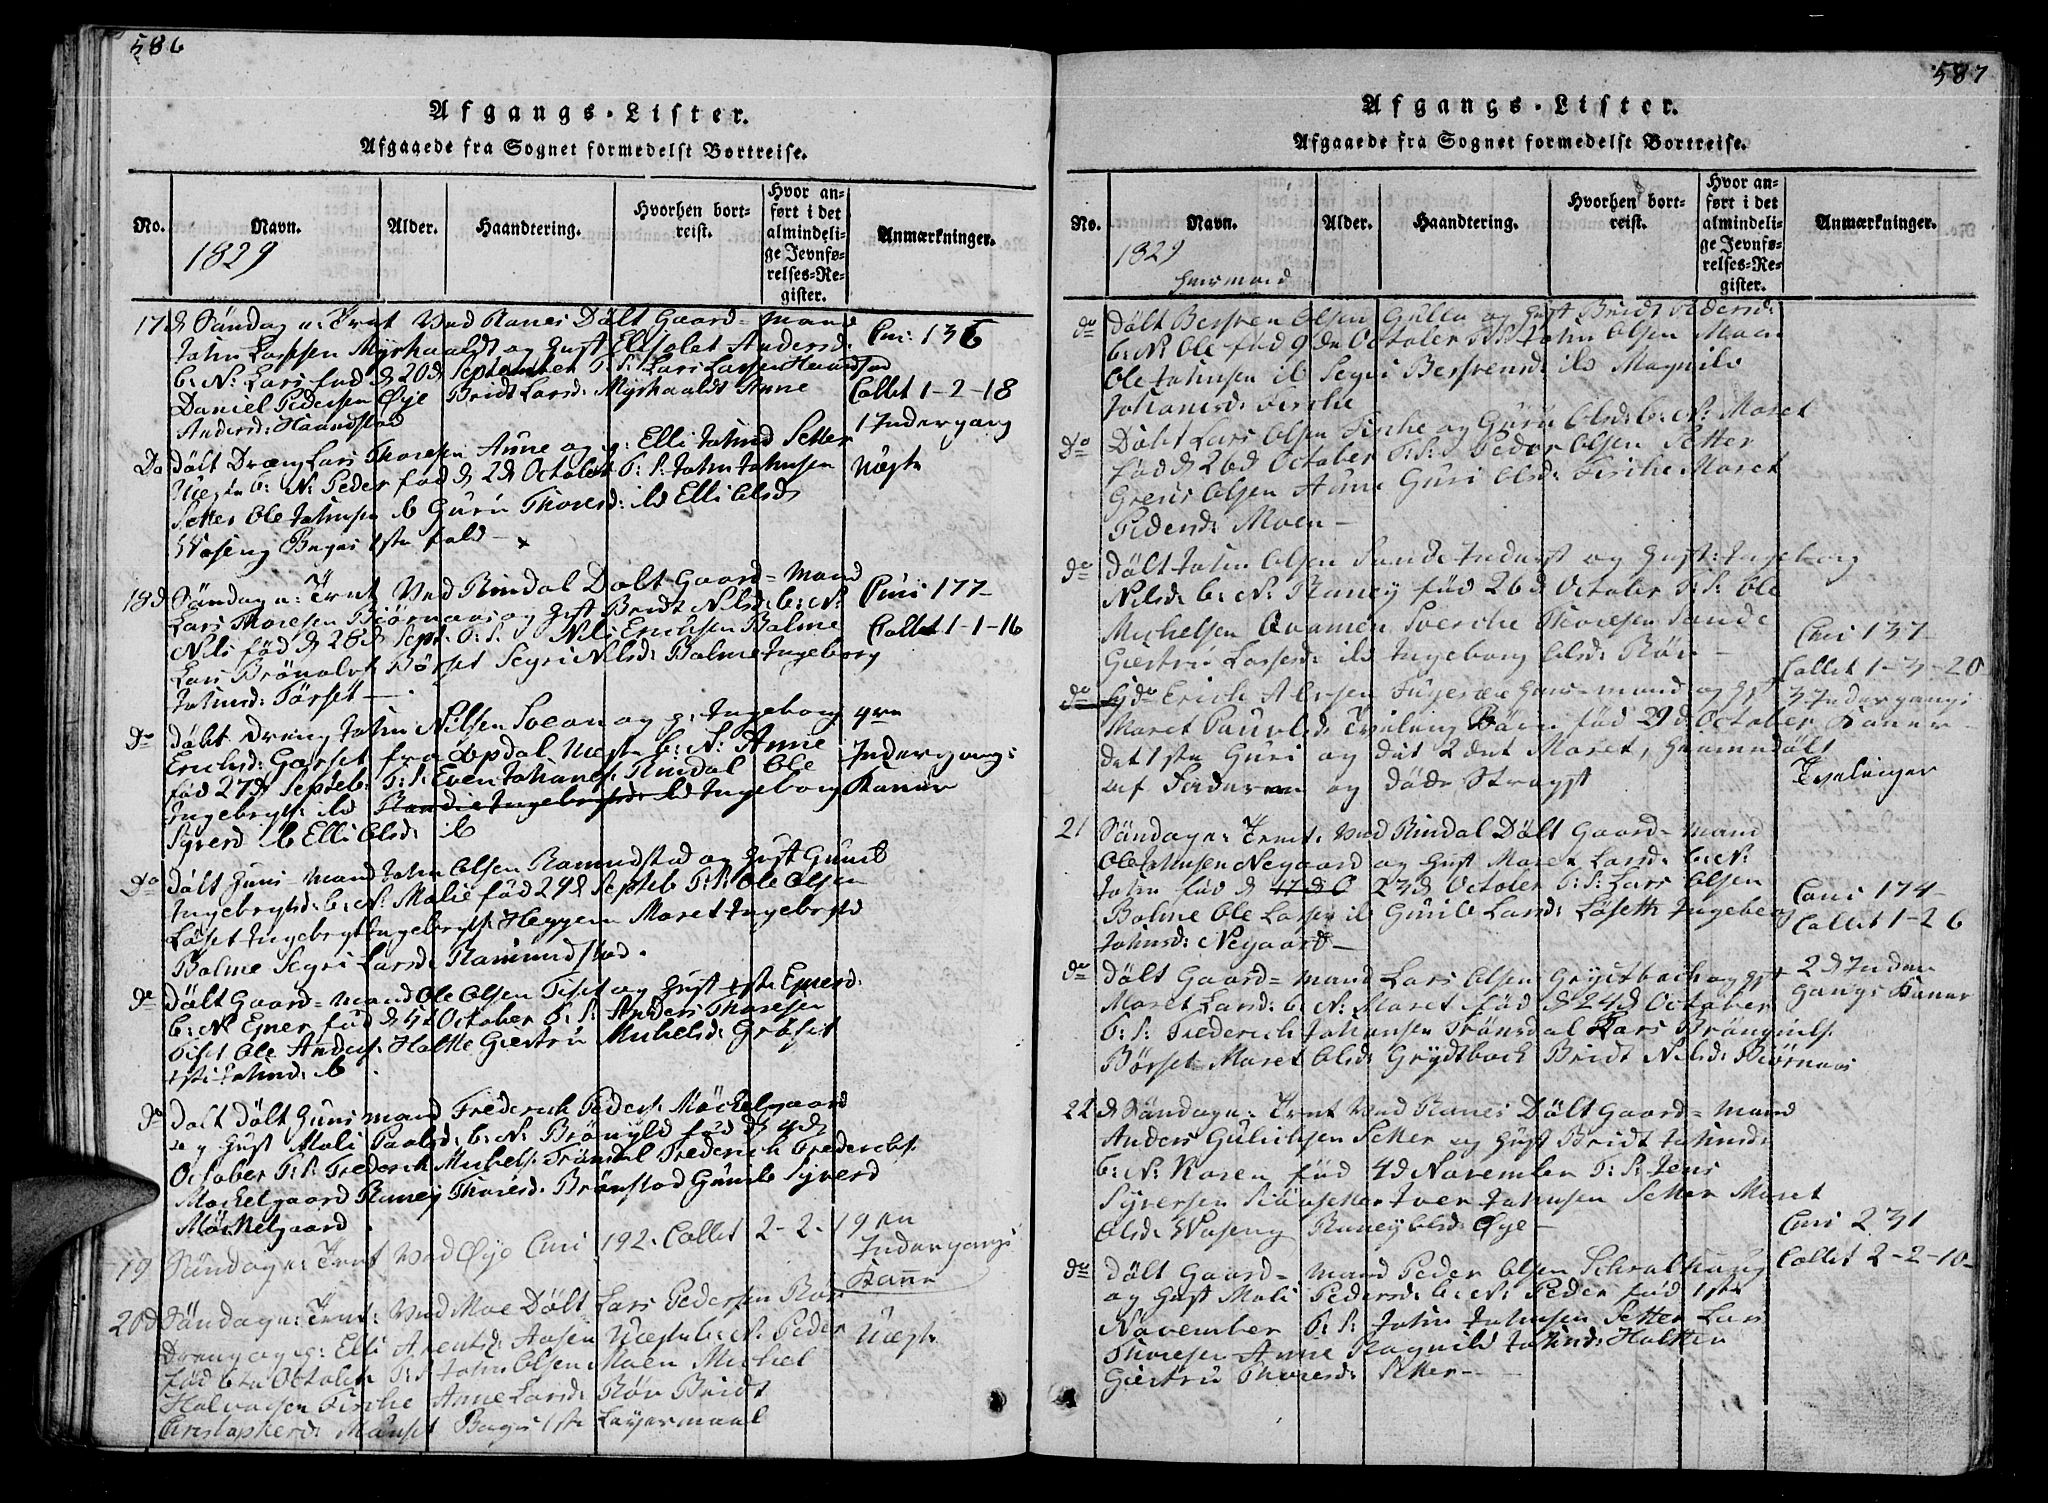 586
Afgangs-Lister.
Afgaaede fra Sognet formedelst Bortreise.
No.
Navn.
Alder.
Haandtering.
Hvorhen bort-
reist.
Hvor an-
ført i det
almindeli-
ge Jevnfø-
relses-Re-
gister.
Anmærkninger.
1829
17d Söndag e: Trnt Ved Ranes Dölt Gaard-mand
John Larssen Myrhaaldt og Hust Ellsolet Andersd:
b: N: Lars föd d 20d September T: S: Lars Larssen Haandstad
Daniel Pedersen Øye Bridt Larsd: Myrhaaldt Anne
Andersd: Haandstad
Cmi: 136
Collet 1-2-18
1 Indergang
Do Dölt Dreng Lars Thoresen Aune og g: Elli Johnsd Setter
Uægte b: N: Peder föd d 2d October T: S: John Johnsen
Setter Ole Johnsen ib Guru Thoresd: ib Elli Olsd
Waseng Beges 1ste fald
Uægte
18d Söndag e: Trnt Ved Rindal Dölt Gaard-mand
Lars Thoresen Biörnaas og Hust Bridt Nilsd: b: N:
Nils föd d 28d Sept: T: S: Nils Erichsen Bolme
Lars Börset Segri Nilsd: Bolme Ingeborg
Johnsd: Törset
Cmi 177-
Collet 1-1-16
Do dölt Dreng John Nilsen Svean og g: Ingeborg
Erichsd: Gorset fra Opdal Uægte b: N: Anne
föd 27d Septeb: T: S: Even Johans: Rindal Ole
Ingebrigts: ib Randie Ingebrigtsd: ib Ingeborg
Syversd ib Elli Olsd: ib
Indergangs
Koner
Do dölt Huus-mand John Olsen Romundstad og Hust Gunil
Ingebrigtsd: b: N: Malie föd 29d Septeb T: S: Ole Olsen
Löset Ingebrigt Ingebrigts: Heggem Maret Ingebrigtsd
Bolme Segri Larsd: Romundstad.
Do dölt Gaard-mand Ole Olsen Tiset og Hust
b: N: föd d 4d October T: S: Anders Thoresen
Tiset Ole Anders: Holte Giertru Michelsd: Gröset
Johnsd: ib
Do dölt Huusmand Frederich Peders: Möckelgaard
og Hust Mali Paalsd: b: N: Brönyld föd d
October T: S: Frederich Michels: Trönsdal Frederich Frederichs:
Möckelgaard Raney Thoresd: Brönstad Gunild Syversd
Möckelgaard
19 Söndag e: Trnt Ved Øye Cmi 192. Collet 2-2-19
Indergangs
Kone
20d Söndag e: Trnt: Ved Moe Dölt Lars Pedersen Röv
Dreng og g: Elli Arentsd: Aasen Uægte b: N: Peder
föd 6te October T: S: John Olsen Moen Michel
Halvorsen Fiske Anne Larsd: Röv Bridt
Christophersd: Mauset Beges 1ste Leyermaal
Uægte
587
Afgangs-Lister.
Afgaaede fra Sognet formedelst Bortreise.
No.
Navn.
Alder.
Haandtering.
Hvorhen bort-
reist.
Hvor an-
ført i det
almindeli-
ge Jevnfø-
relses-Re-
gister.
Anmærkninger.
1829
Huusmand
do Dölt Olsen Gulla og Hust Bridt Pedersd:
b: N: Ole föd 9de October T: S: John Olsen Moen
Ole Johnsen ib Segri ib Magnild
Johansd: Fiske
Do Dölt Lars Olsen Fiske og Guru Olsd: b: N: Maret
föd d 26d October T: S: Peder Olsen Setter
Olsen Aune Guri Olsd: Fiske Maret
Pedersd: Moen
do dölt John Olsen Sande Inderst og Hust: Ingeborg
Nilsd: b: N: Raney föd 26d October T: S: Ole
Michelsen Qvamen Sverche Thoresen Sande
Giertru Larsd: ib Ingeborg Olsd: Röv
Cmi 137
Collet 1-3-20
3 Indergangs
Koner
do Erich Huus-mand og Hust
Maret Paulsd: Tvilling Börn föd 29d October
det 1ste Guri og det 2det Maret, Hiemmedölt
af Faderen og döde Stragst
Tvelinger
21 Söndag e: Trnt: Ved Rindal Dölt Gaard-mand
Ole Johnsen Negaard og Hust Maret Larsd: b: N:
John föd d 17d O 23d October T: S: Lars Olsen
Bolme Ole Larsen ib Gunild Larsd: Löseth Ingeborg
Johnsd: Negaard
Cmi 174-
Collet 1-2 6
do dölt Gaard-mand Lars Olsen Grytbach og Hust
Maret Larsd: b: N: Maret föd d 24d October
T: S: Frederich Johansen Trönsdal Lars
Börset Maret Olsd: Grydtbach Bridt Nilsd: Biörnaas
2d Inder
gangs Koner
22d Söndag e: Trnt Ved Ranes Dölt Gaard-mand
Anders Gulichsen Setter og Hust Bridt Johnsd:
b: N: Karen föd 4d November T: S: Jens
Syversen Iver Johnsen Setter Maret
Olsd: Waseng Raney Olsd: Øye
Cmi 231
Collet 2-2-10-
do dölt Gaard-mand Peder Olsen
og Hust Mali Pedersd: b: N: Peder föd 1ste
November T: S: John Johnsen Setter Lars
Thoresen Aune Ragnild Johnsd: Holten
Giertru Thoresd: Setter